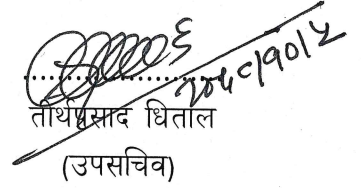 २०५८।१०।५
तीर्थप्रसाद धिताल
(उपसचिव)